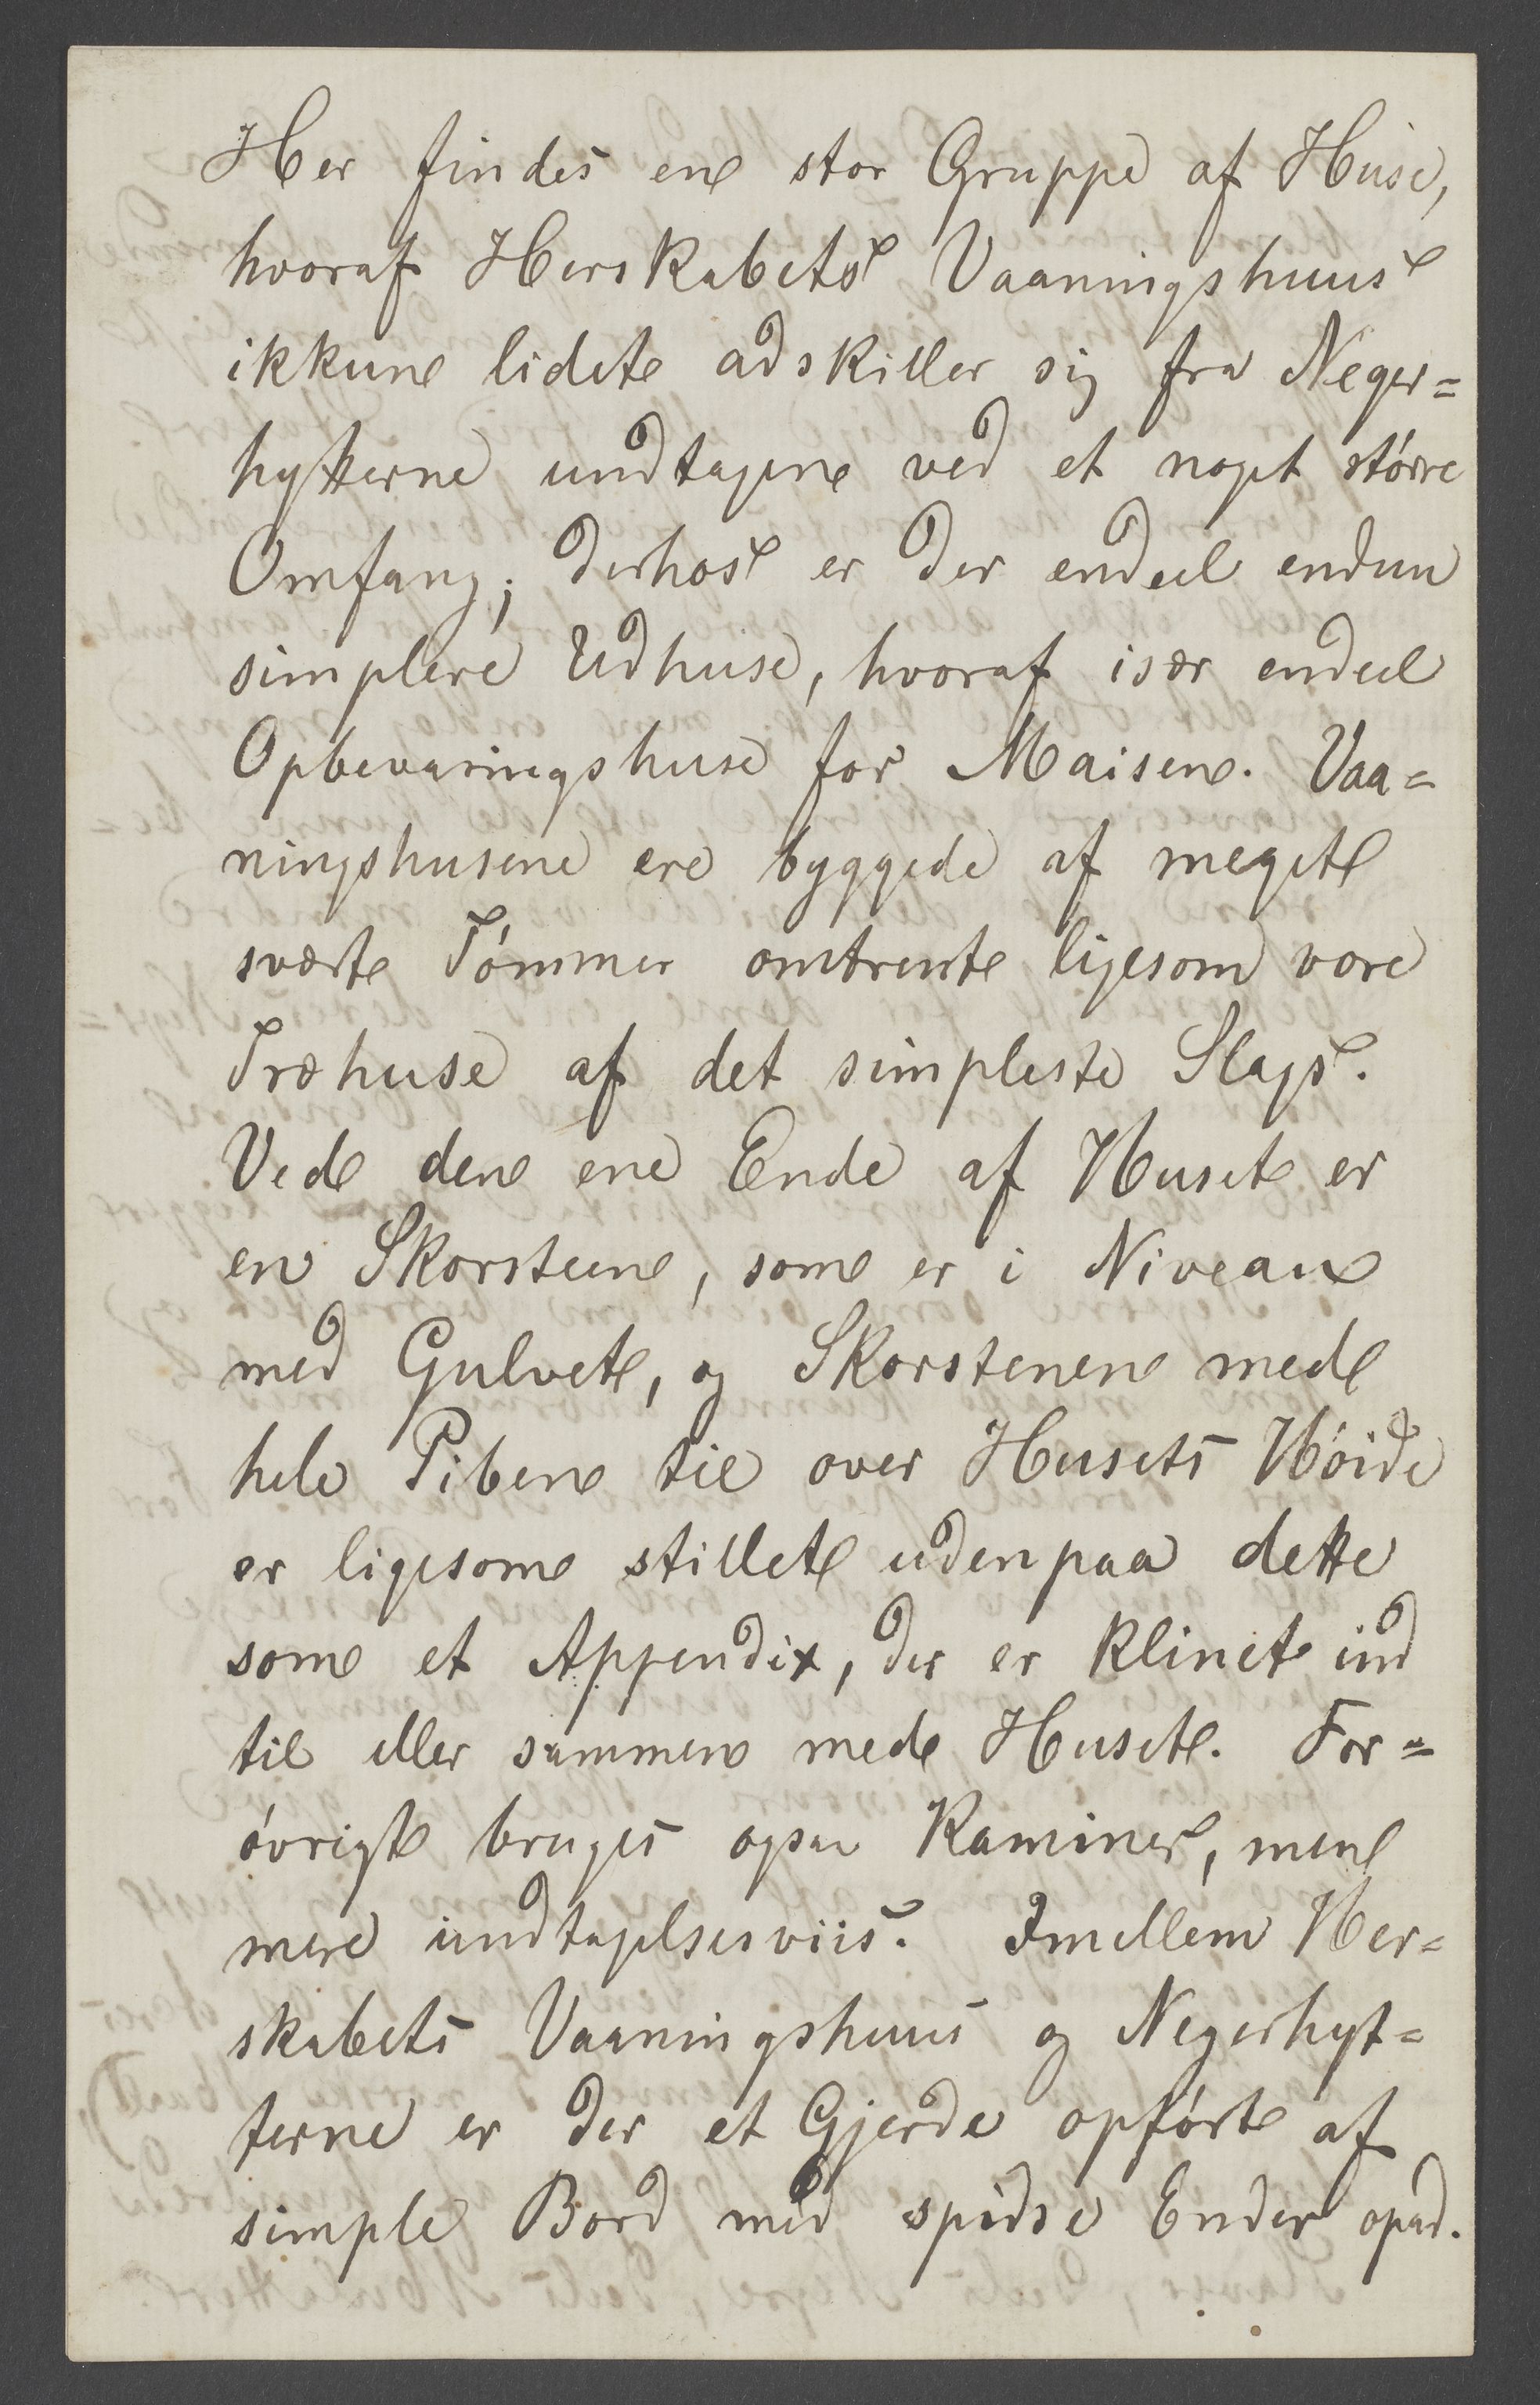 Her findes en stor Gruppe af Huse,
hvoraf Herskabets Vaaningshuus
ikkun lidet adskiller sig fra Neger=
hytterne undtagen ved et noget större
Omfang; derhos er der endeel endnu
simplere Udhuse, hvoraf især endeel
Opbevaringshuse for Maisen. Vaa=
ningshusene ere byggede af meget
svært Tömmer omtrent ligesom vore
Træhuse af det simpleste Slags.
Ved den ene Ende af Huset er
en Skorsteen, som er i Niveau
med Gulvet, og Skorstenen med
hele Piben til over Husets Höide
er ligesom stillet udenpaa dette
som et Appendix, der er klinet ind
til eller sammen med Huset. For=
övrigt bruges ogsaa Kaminer, men
mere undtagelsesviis. Imellem Her=
skabets Vaaningshuus og Negerhyt=
terne er der et Gjerde opfört af
simple Bord med spidse Ender opad.